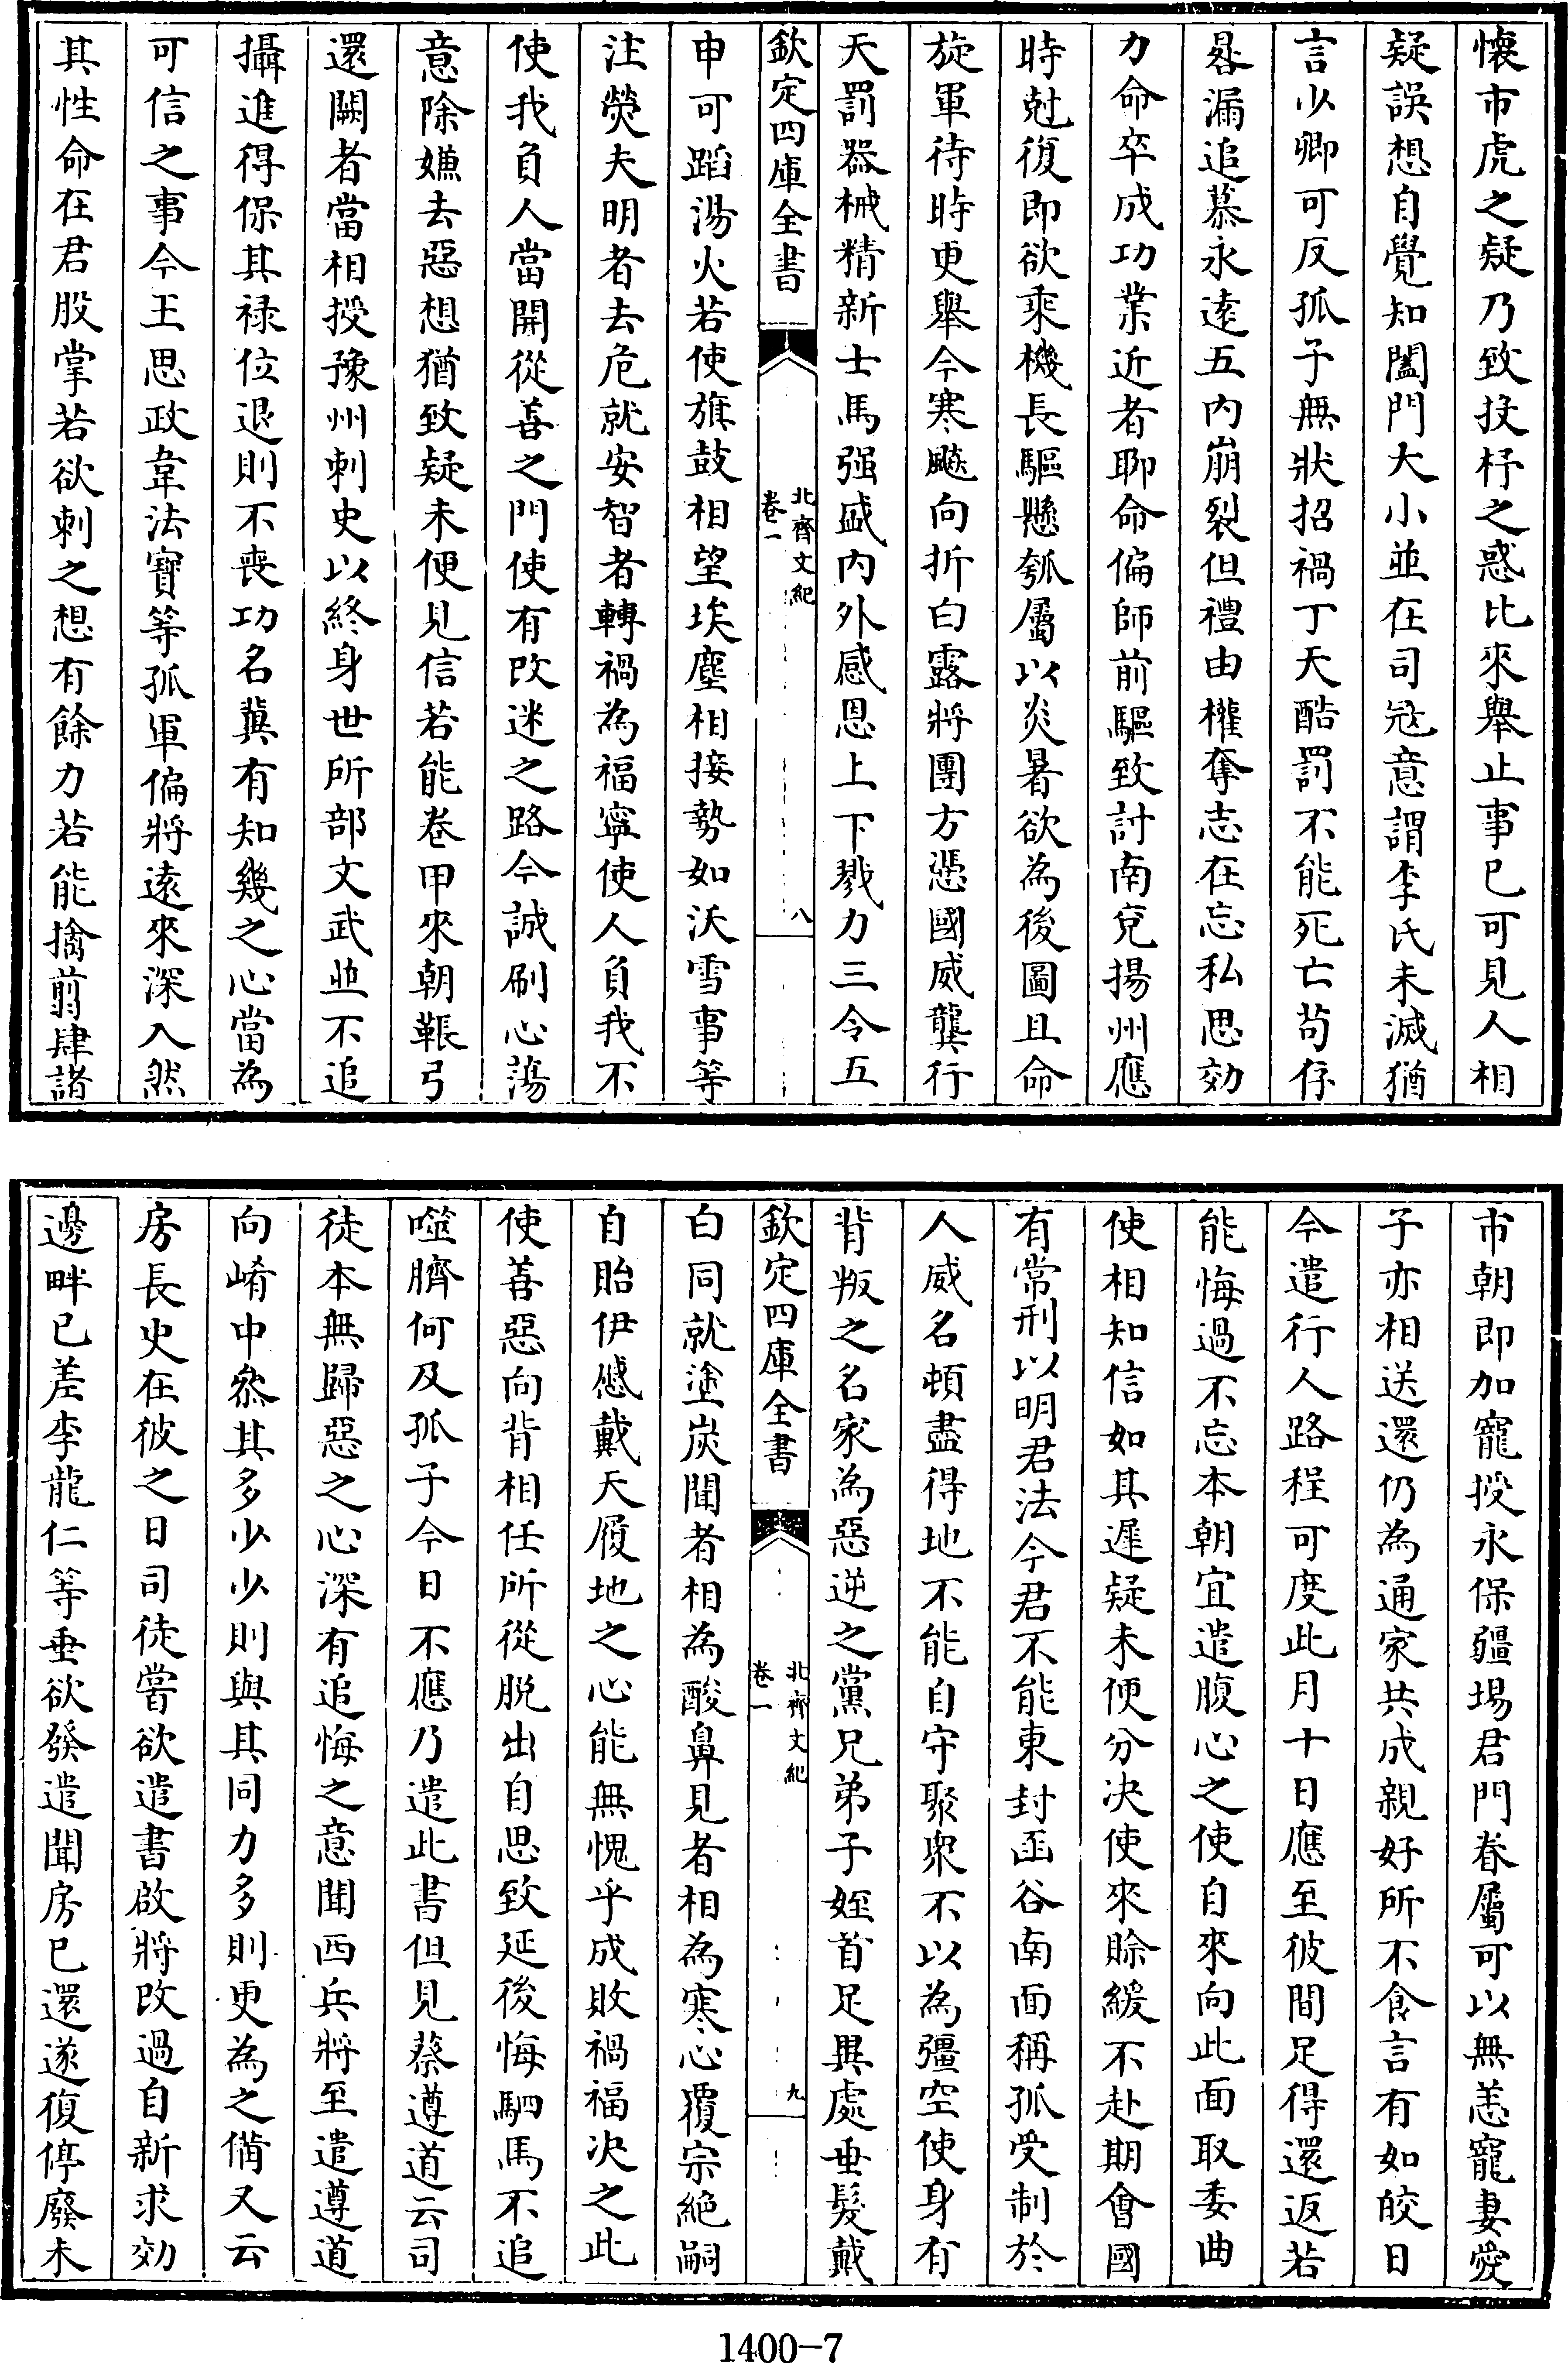 懐市虎之疑乃致投杼之惑比來舉止事已可見人相
疑誤想自覺知闔門大小並在司冦意謂李氏未滅猶
言少卿可反孤子無狀招禍丁天酷罰不能死亡苟存
晷漏追慕永遠五内崩裂但禮由權奪志在忘私思効
力命卒成功業近者聊命偏師前驅致討南兗揚州應
時尅復即欲乘機長驅懸瓠屬以炎暑欲為後圖且命
旋軍待時更舉今寒飈向折白露將團方憑國威龔行
天罰器械精新士馬强盛内外感恩上下戮力三令五
欽定四庫全書
北齊文紀
卷一
八
申可蹈湯火若使旗鼓相望埃塵相接勢如沃雪事等
注熒夫明者去危就安智者轉禍為福寧使人負我不
使我負人當開從善之門使有改迷之路今誠刷心蕩
意除嫌去惡想猶致疑未便見信若能卷甲來朝鞬弓
還闕者當相授豫州刺史以終身世所部文武並不追
攝進得保其禄位退則不喪功名冀有知幾之心當為
可信之事今王思政韋法寶等孤軍偏將遠來深入然
其性命在君股掌若欲刺之想有餘力若能擒翦肆諸
市朝即加寵授永保疆埸君門眷屬可以無恙寵妻愛
子亦相送還仍為通家共成親好所不食言有如皎日
今遣行人路程可度此月十日應至彼間足得還返若
能悔過不忘本朝宜遣腹心之使自來向此面取委曲
使相知信如其遲疑未便分决使來賒緩不赴期會國
有常刑以明君法今君不能東封函谷南面稱孤受制於
人威名頓盡得地不能自守聚衆不以為彊空使身有
背叛之名家為惡逆之黨兄弟子姪首足異處垂髮戴
欽定四庫全書
北齊文紀
卷一
九
白同就塗炭聞者相為酸鼻見者相為寒心覆宗絶嗣
自貽伊慼戴天履地之心能無愧乎成敗禍福决之此
使善惡向背相任所從脱出自思致延後悔駟馬不追
噬臍何及孤子今日不應乃遣此書但見蔡遵道云司
徒本無歸惡之心深有追悔之意聞西兵將至遣遵道
向崤中叅其多少少則與其同力多則更為之備又云
房長史在彼之日司徒嘗欲遣書啟將改過自新求効
邊畔已差李龍仁等垂欲發遣聞房已還遂復停廢未
1400-7